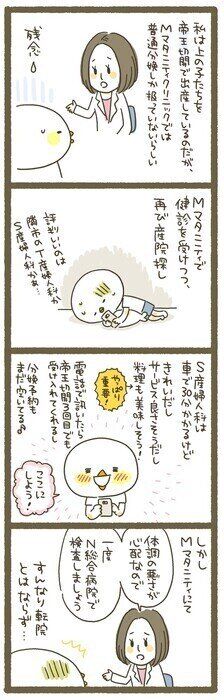 私は上の子たちを
帝王切開で出産しているのだが、
Mマタニティクリニックでは
普通分娩しか扱っていないらしい
残念
Mマタニティで
健診を受けつつ、
再び産院探し
評判いいのは
隣市のT産婦人科か
S産婦人科かぁ…
S産婦人科は
車で30分かかるけど
きれいだし
サービス良さそうだし
料理も美味しそう!
やっぱり
重要!
電話で訊いたら
帝王切開3回目でも
受け入れてくれるし
分娩予約も
まだ空いてる♪
ここに
しよう!
しかし
Mマタニティにて
体調の悪さが
心配なので
一度
N総合病院で
検査しましょう
すんなり転院
とはならず…